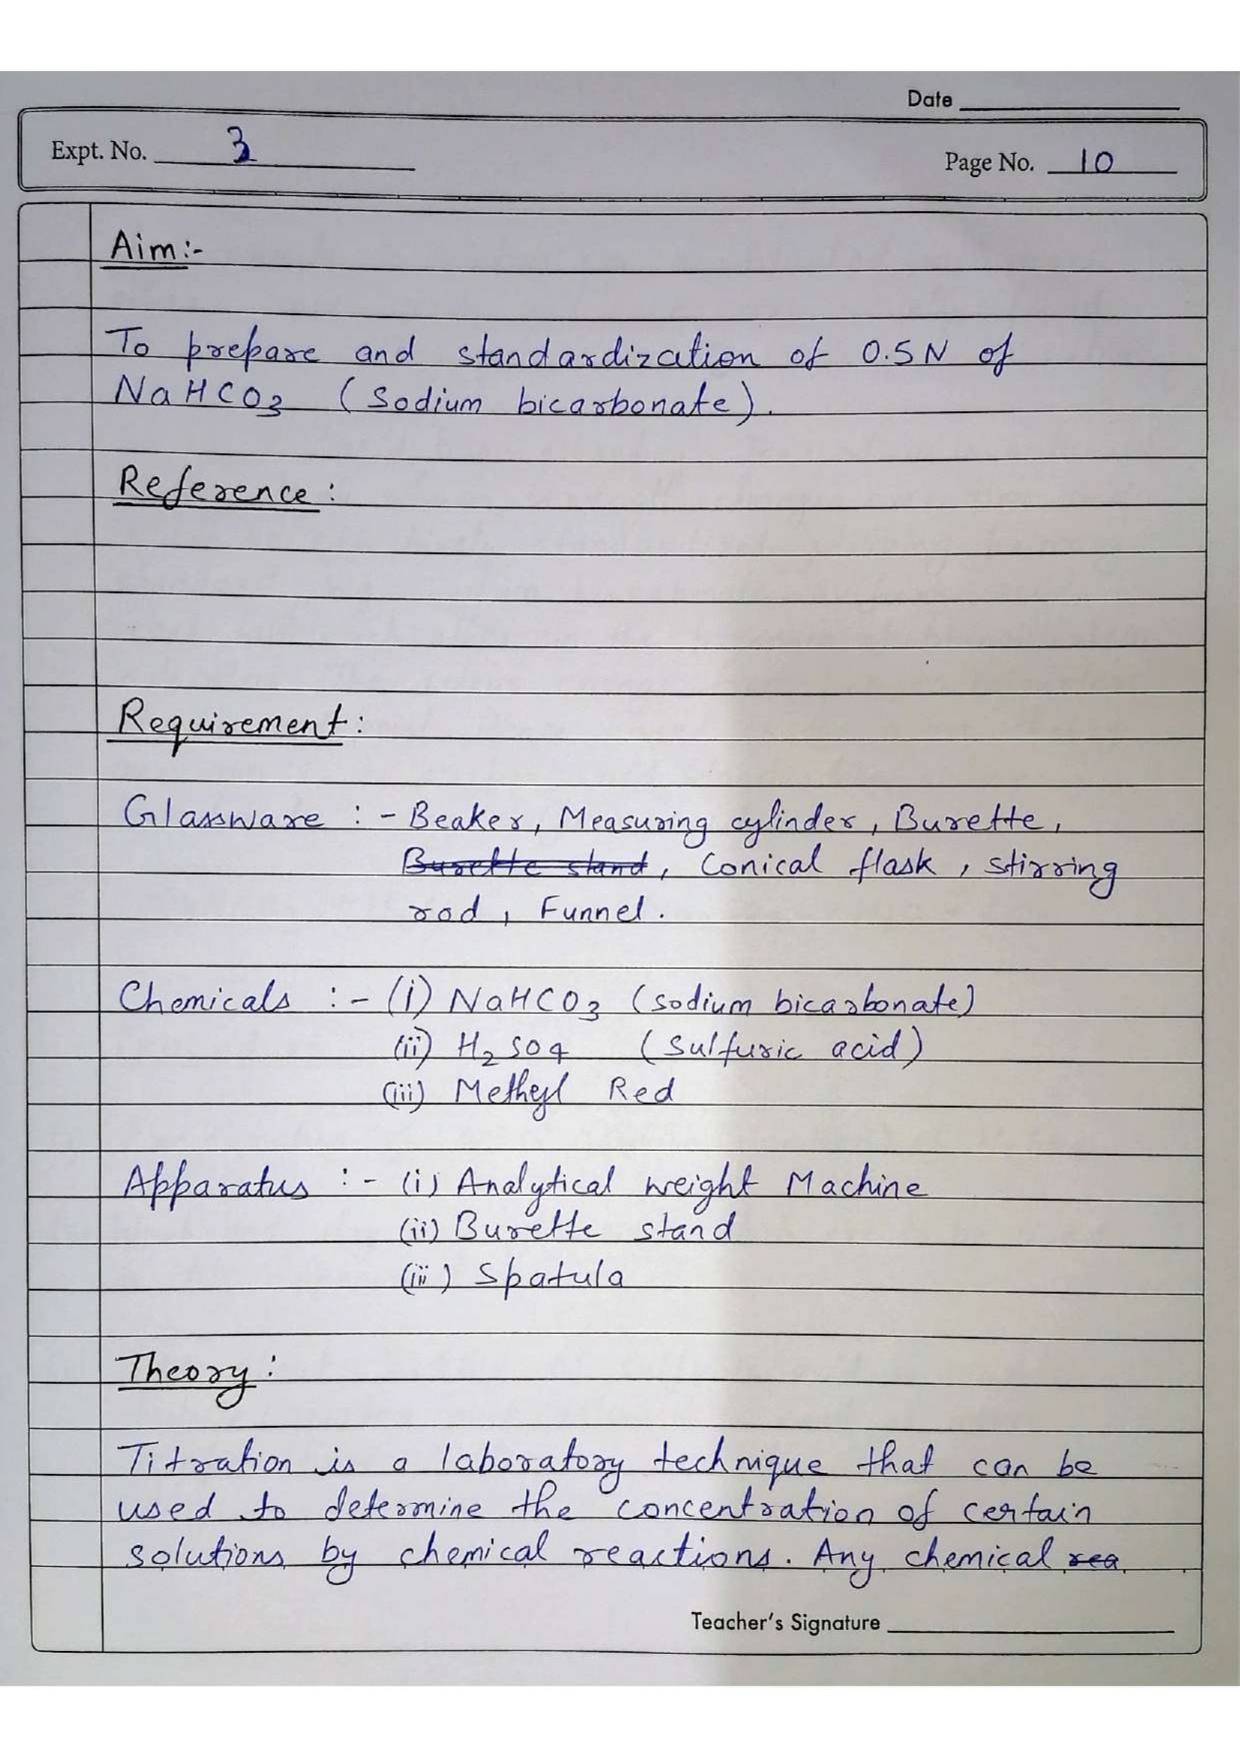 Date
Expt. No. 3
Page No. 10
Aim :-
To prepare and standardization of 0.5N of
NaHCO3 (Sodium bicarbonate).
Reference :
Requirement :
Glassware :- Beaker, Measuring cylinder, Burette,
Burette stand, Conical flask, stirring
rod, Funnel.
Chemicals :- (i) NaHCO3 (sodium bicarbonate)
(ii) H2SO4 (Sulfuric acid)
(iii) Methyl Red
Apparatus :- (i) Analytical weight Machine
(ii) Burette stand
(iii) Spatula
Theory :
Titration is a laboratory technique that can be
used to determine the concentration of certain
solutions by chemical reactions. Any chemical rea
Teacher's Signature